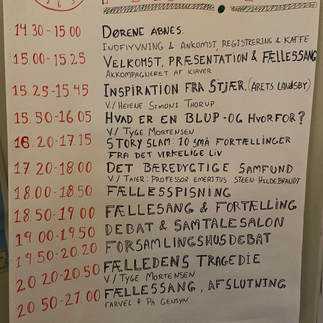 14.30-15.00 DØRENE ÅBNES.
INDFLYVNING & ANKOMST, REGISTRERING & KAFFE
15.00-15.25 VELKOMST, PRÆSENTATION & FÆLLESSANG
AKKOMPAGNERET AF KLAVER
15.25-15.45 INSPIRATION FRA STJÆR. (ÅRETS LANDSBY)
V./ HELENE SIMONI THORUP
15.50-16.05 HVAD ER EN BLUP - OG HVORFOR?
V/ TYGE MORTENSEN
16.20-17.15 STORY SLAM: 10 SMÅ FORTÆLLINGER
FRA DET VIRKELIGE LIV
17.20-18.00 DET BÆREDYGTIGE SAMFUND
PROFESSOR EMERITUS STEEN HILDEBRANDT
18.00-18.50 FÆLLESSPISNING
18.50-19.00 FÆLLESSANG & FORTÆLLING
19.00-19.50 DEBAT & SAMTALESALON
19.50-20.20 FORSAMLINGSHUSDEBAT
20.20-20.50 FÆLLEDENS TRAGEDIE
V./ TYGE MORTENSEN
20.50-21.00 FÆLLESSANG, AFSLUTNING
FARVEL & PÅ GENSYN